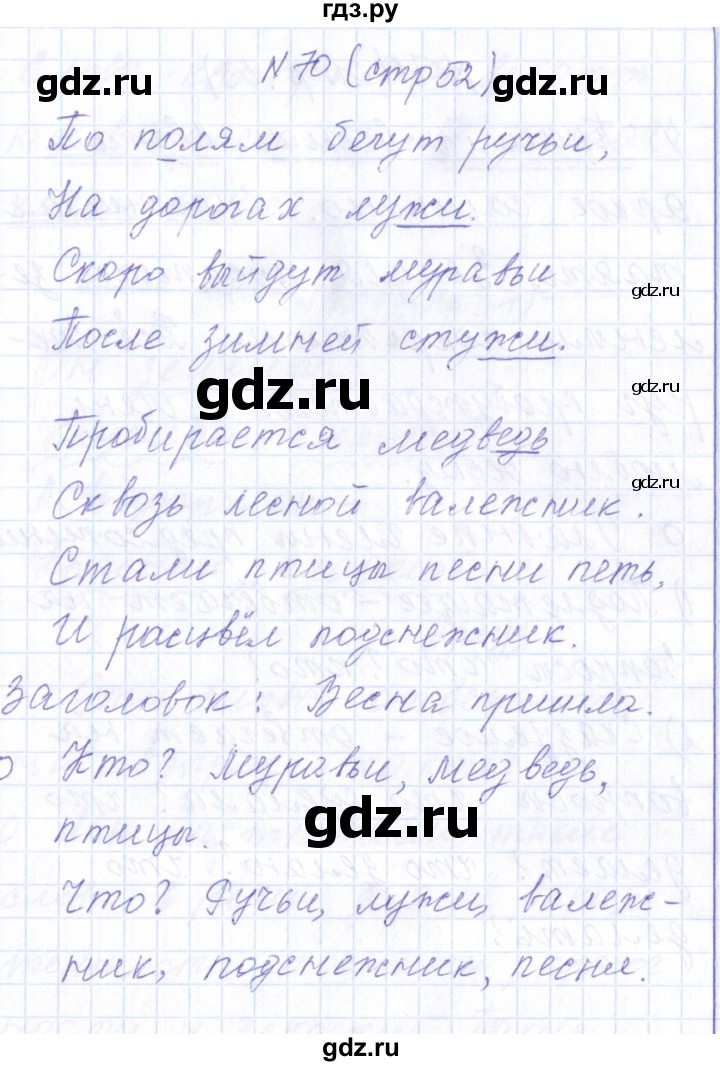 гдз.ру
gdz.ru gdz.ru
N 70 (стр 52)
По полям бегут ручьи,
На дорогах лужи.
gdz.ru
Скоро выйдут муравьи
gdz.ru
После зимней стужи.
gdz.ru
gdz.ru
Пробирается медведь
Сквозь лесной валежник.
gdz.ru
Стали птицы песни петь,
gdz.ru
И расцвёл подснежник.
Заголовок: Весна пришла.
Кто? Муравьи, медведь,
птицы.
gdz.ru
Что? Ручьи, лужи, валеж-
ник, подснежник, песни.
gdz.ru
gdz.ru